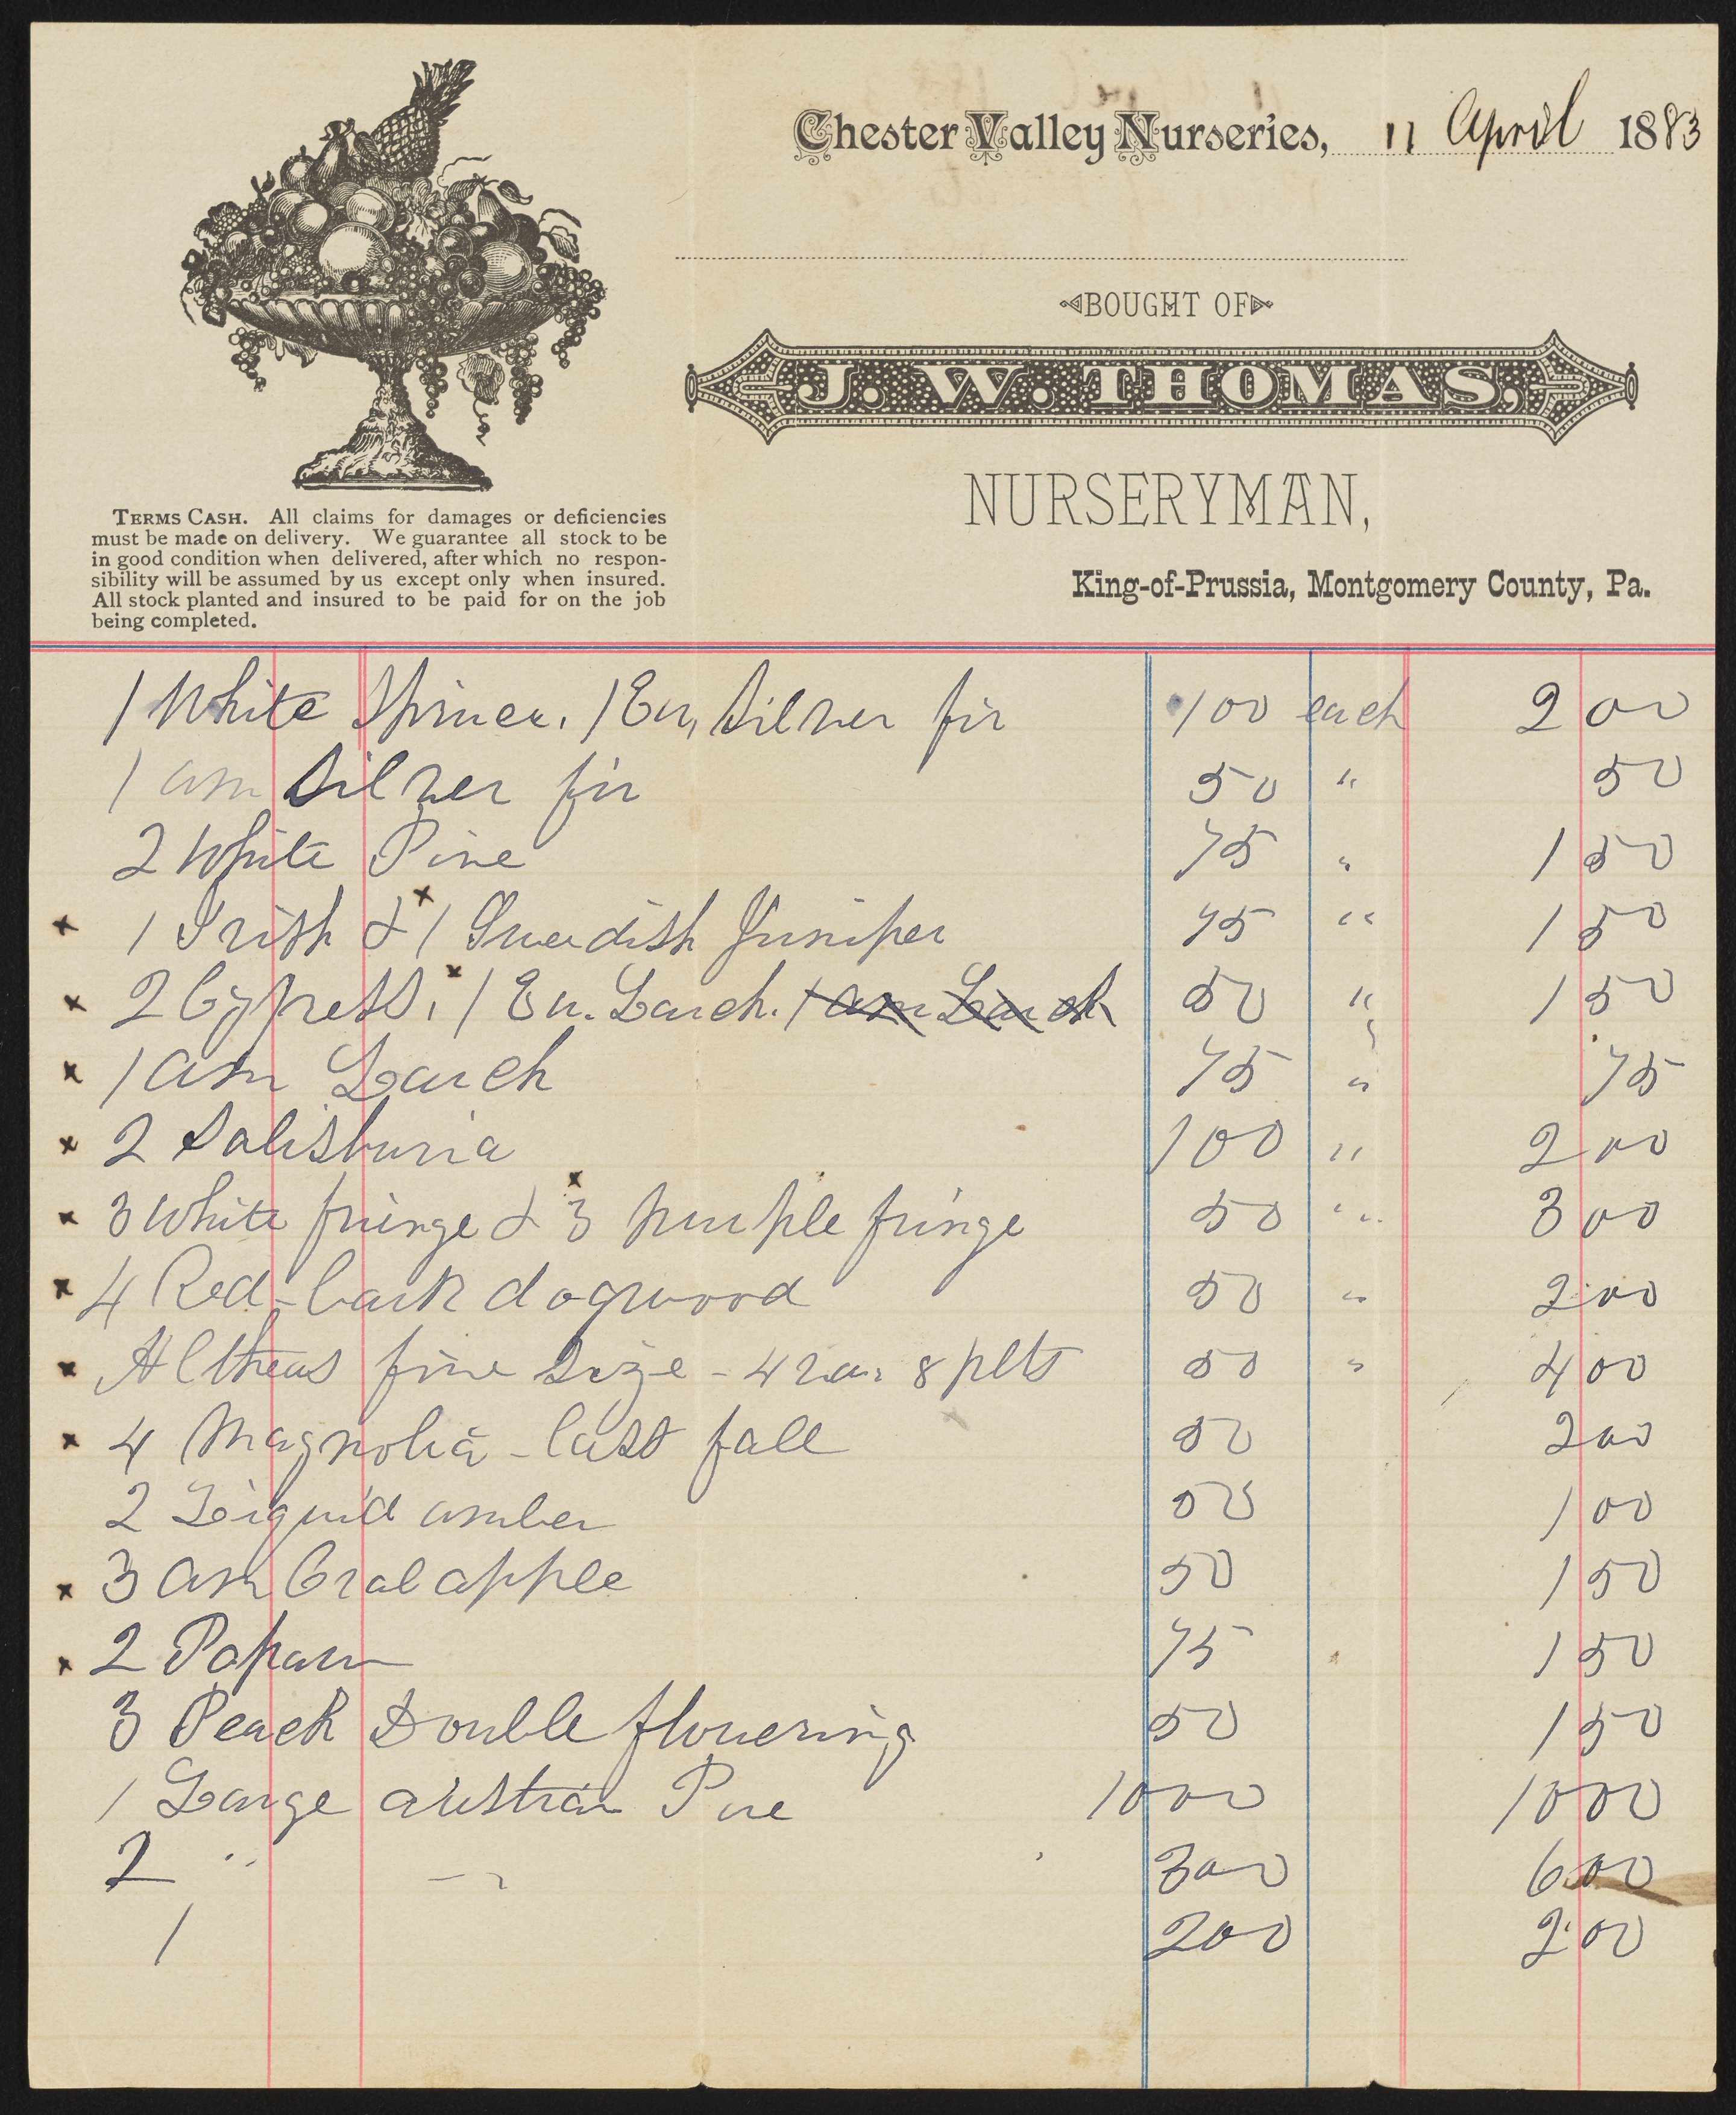 Chester Valley Nurseries, 11 April 1883
BOUGHT OF
J. W. THOMAS,
NURSERYMAN,
King-of-Prussia, Montgomery County, Pa.
TERMS CASH. All claims for damages or deficiencies
must be made on delivery. We guarantee all stock to be
in good condition when delivered, after which no respon-
sibility will be assumed by us except only when insured.
All stock planted and insured to be paid for on the job
being completed.
1 White Spruce. 1 Eu, Silver fir 100 each 2 00
1 am Silver fir 50 " 50
2 White Pine 75 " 1 50
x 1 Irish & x 1 Sweedish Juniper 75 " 1 50
x 2 Cypress, x 1 Eu. Larch. 1 am Larch 50 " 1 50
x 1 am Larch 75 " 75
x 2 Salisburia 100 " 2 00
x 3 White fringe & x 3 purple fringe 50 " 3 00
x 4 Red-bark dogwood 50 " 2 00
x Altheas fine Size - 4 var 8 plts 50 " 4 00
x 4 Magnolia - last fall 50 2 00
2 Liquid amber 50 1 00
x 3 am Crab apple 50 1 50
x 2 Papaw 75 1 50
3 Peach Double flowering 50 1 50
1 Large austrian Pine 1000 10 00
2 " " 300 6 00
1 200 2 00